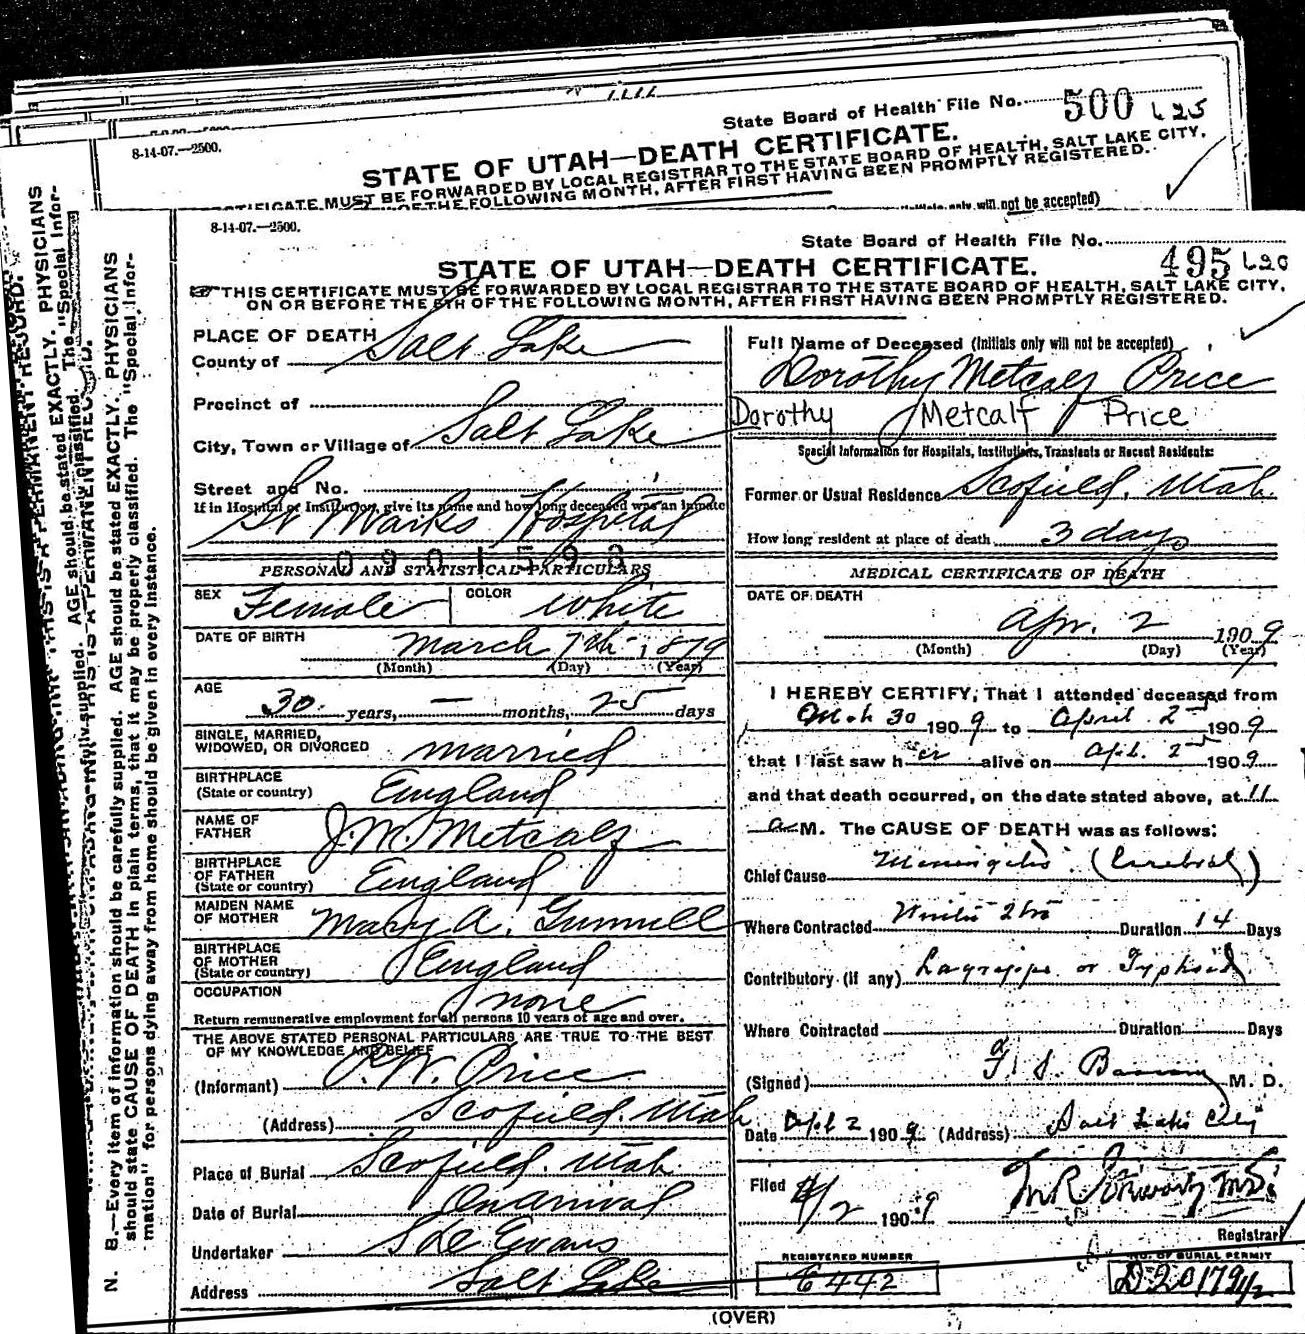 8-14-07.—2500.
State Board of Health File No. 500 L 25
STATE OF UTAH—DEATH CERTIFICATE.
MUST BE FORWARDED BY LOCAL REGISTRAR TO THE STATE BOARD OF HEALTH, SALT LAKE CITY,
OF THE FOLLOWING MONTH, AFTER FIRST HAVING BEEN PROMPTLY REGISTERED.
only will not be accepted)
8-14-07.—2500.
State Board of Health File No.
495 L20
STATE OF UTAH—DEATH CERTIFICATE.
THIS CERTIFICATE MUST BE FORWARDED BY LOCAL REGISTRAR TO THE STATE BOARD OF HEALTH, SALT LAKE CITY,
ON OR BEFORE THE 5TH OF THE FOLLOWING MONTH, AFTER FIRST HAVING BEEN PROMPTLY REGISTERED.
PLACE OF DEATH
County of Salt Lake
Precinct of
City, Town or Village of Salt Lake
Street and No.
If in Hospital or Institution, give its name and how long deceased was an inmate
St Marks Hospital
0901593
PERSONAL AND STATISTICAL PARTICULARS
SEX Female COLOR White
DATE OF BIRTH March 7th 1879
(Month) (Day) (Year)
AGE
30 years, — months, 25 days
SINGLE, MARRIED,
WIDOWED, OR DIVORCED married
BIRTHPLACE
(State or country) England
NAME OF
FATHER J. M. Metcalf
BIRTHPLACE
OF FATHER
(State or country) England
MAIDEN NAME
OF MOTHER Mary A. Gunnell
BIRTHPLACE
OF MOTHER
(State or country) England
OCCUPATION none
Return remunerative employment for all persons 10 years of age and over.
THE ABOVE STATED PERSONAL PARTICULARS ARE TRUE TO THE BEST
OF MY KNOWLEDGE AND BELIEF
(Informant) P. W. Price
(Address) Scofield. Utah
Place of Burial Scofield. Utah
Date of Burial On arrival
Undertaker S D Evans
Address Salt Lake
Full Name of Deceased (Initials only will not be accepted)
Dorothy Metcalf Price
Dorothy Metcalf Price
Special Information for Hospitals, Institutions, Transients or Recent Residents:
Former or Usual Residence Scofield, Utah
How long resident at place of death 3 days
MEDICAL CERTIFICATE OF DEATH
DATE OF DEATH
Apr. 2 1909
(Month) (Day) (Year)
I HEREBY CERTIFY, That I attended deceased from
Mch 30 1909 to April 2nd 1909
that I last saw her alive on Apl. 2nd 1909
and that death occurred, on the date stated above, at 11
a M. The CAUSE OF DEATH was as follows:
Chief Cause Meningitis (Cerebral)
Where Contracted Duration 14 Days
Contributory (if any) Lagrippe or Typhoid
Where Contracted Duration Days
(Signed) M. D.
Date Apl 2 1909 (Address) Salt Lake City
Filed 4/2 1909
Registrar
REGISTERED NUMBER
6442
NO. OF BURIAL PERMIT
(OVER)
N. B.—Every item of information should be carefully supplied. AGE should be stated EXACTLY. PHYSICIANS
should state CAUSE OF DEATH in plain terms, that it may be properly classified. The "Special Infor-
mation" for persons dying away from home should be given in every instance.